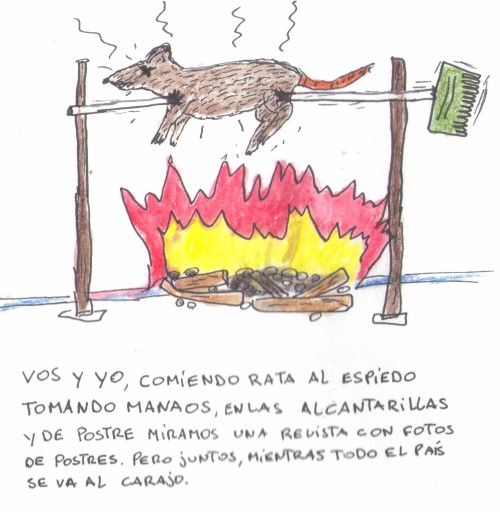 VOS Y YO, COMIENDO RATA AL ESPIEDO
TOMANDO MANAOS, EN LAS ALCANTARILLAS
Y DE POSTRE MIRAMOS UNA REVISTA CON FOTOS
DE POSTRES. PERO JUNTOS, MIENTRAS TODO EL PAÍS
SE VA AL CARAJO.